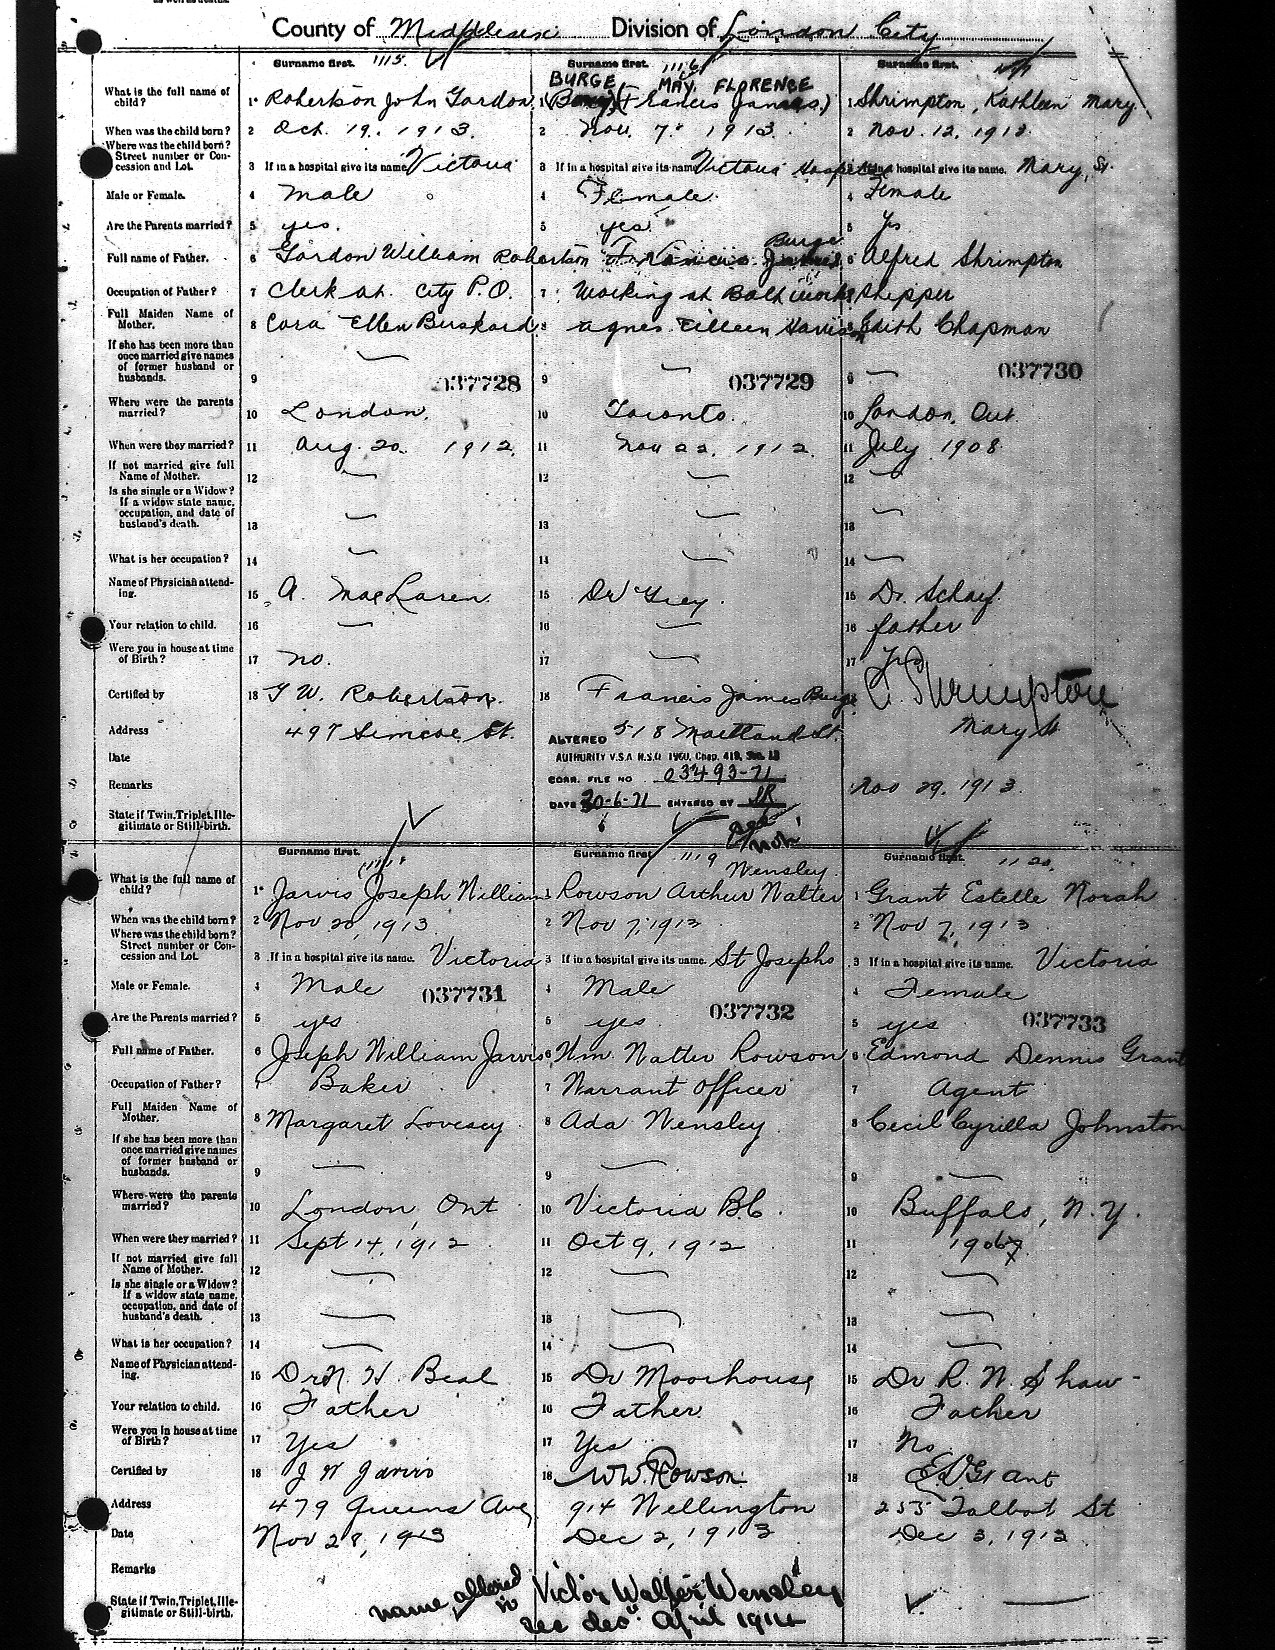 as well as deaths.
County of Middlesex Division of London City
Surname first. 1115. Surname first. 1116 Surname first.
BURGE MAY FLORENCE
What is the full name of child? 1 Robertson John Gordon. 1 (Francis James) 1 Shrimpton, Kathleen Mary
When was the child born? 2 Oct. 19. 1913. 2 Nov. 7 1913. 2 Nov. 12. 1913.
Where was the child born? Street number or Concession and Lot. 3 If in a hospital give its name Victoria 3 If in a hospital give its name Victoria Hospital 3 If in a hospital give its name. Mary St.
Male or Female. 4 Male 4 Female. 4 Female
Are the Parents married? 5 yes. 5 yes. 5 Yes
Burge
Full name of Father. 6 Gordon William Robertson 6 Francis James 6 Alfred Shrimpton
Occupation of Father? 7 Clerk at City P.O. 7 Working at Bolt works 7 Shipper
Full Maiden Name of Mother. 8 Cora Ellen Buskard 8 Agnes Eilleen Harrison 8 Edith Chapman
If she has been more than once married give names of former husband or husbands. 9 — 037728 9 — 037729 9 — 037730
Where were the parents married? 10 London. 10 Toronto. 10 London, Ont.
When were they married? 11 Aug. 20. 1912. 11 Nov 22. 1912. 11 July 1908
If not married give full Name of Mother. 12 — 12 — 12 —
Is she single or a Widow? If a widow state name, occupation, and date of husband's death. 13 — 13 — 13 —
What is her occupation? 14 — 14 — 14 —
Name of Physician attending. 15 A. MacLaren. 15 Dr 15 Dr.
Your relation to child. 16 — 16 — 16 father
Were you in house at time of Birth? 17 no. 17 — 17 Yes
Certified by 18 G W. Robertson. 18 Francis James Burge 18 A. Shrimpton
Address 497 Simcoe St. 518 Maitland St. Mary St
ALTERED
Date AUTHORITY V.S.A R.S.O 1960, Chap. 419, Sec. 13
Remarks CORR. FILE NO 03493-71 Nov 29. 1913.
State if Twin, Triplet, Illegitimate or Still-birth. DATE 30-6-71 ENTERED BY
Surname first. Surname first. 1119 Surname first. 1120
Wensley
What is the full name of child? 1 Jarvis Joseph William 1 Rowson Arthur Walter 1 Grant Estelle Norah
When was the child born? 2 Nov 20, 1913. 2 Nov 7, 1913 2 Nov 7, 1913
Where was the child born? Street number or Concession and Lot. 3 If in a hospital give its name. Victoria 3 If in a hospital give its name. St Josephs 3 If in a hospital give its name. Victoria
Male or Female. 4 Male 037731 4 Male 037732 4 Female
Are the Parents married? 5 yes 5 yes 5 yes 037733
Full name of Father. 6 Joseph William Jarvis 6 Wm. Walter Rowson 6 Edmond Dennis Grant
Occupation of Father? 7 Baker 7 Warrant Officer 7 Agent
Full Maiden Name of Mother. 8 Margaret Lovesey 8 Ada Wensley 8 Cecil Cyrilla Johnston
If she has been more than once married give names of former husband or husbands. 9 — 9 — 9 —
Where were the parents married? 10 London, Ont 10 Victoria B.C. 10 Buffalo, N.Y.
When were they married? 11 Sept 14, 1912 11 Oct 9, 1912 11
If not married give full Name of Mother. 12 — 12 — 12 —
Is she single or a Widow? If a widow state name, occupation, and date of husband's death. 13 — 13 — 13 —
What is her occupation? 14 — 14 — 14 —
Name of Physician attending. 15 Dr N. H. Beal 15 Dr Moorhouse 15 Dr R. W. Shaw
Your relation to child. 16 Father 16 Father 16 Father
Were you in house at time of Birth? 17 Yes 17 Yes 17 No
Certified by 18 J W Jarvis 18 WW Rowson. 18 E D Grant
Address 479 Queens Ave, 914 Wellington 255 Talbot St
Date Nov 28, 1913 Dec 2, 1913 Dec 3, 1913
Remarks
State if Twin, Triplet, Illegitimate or Still-birth. name altered to Victor Walter Wensley —
see dec. April 1914